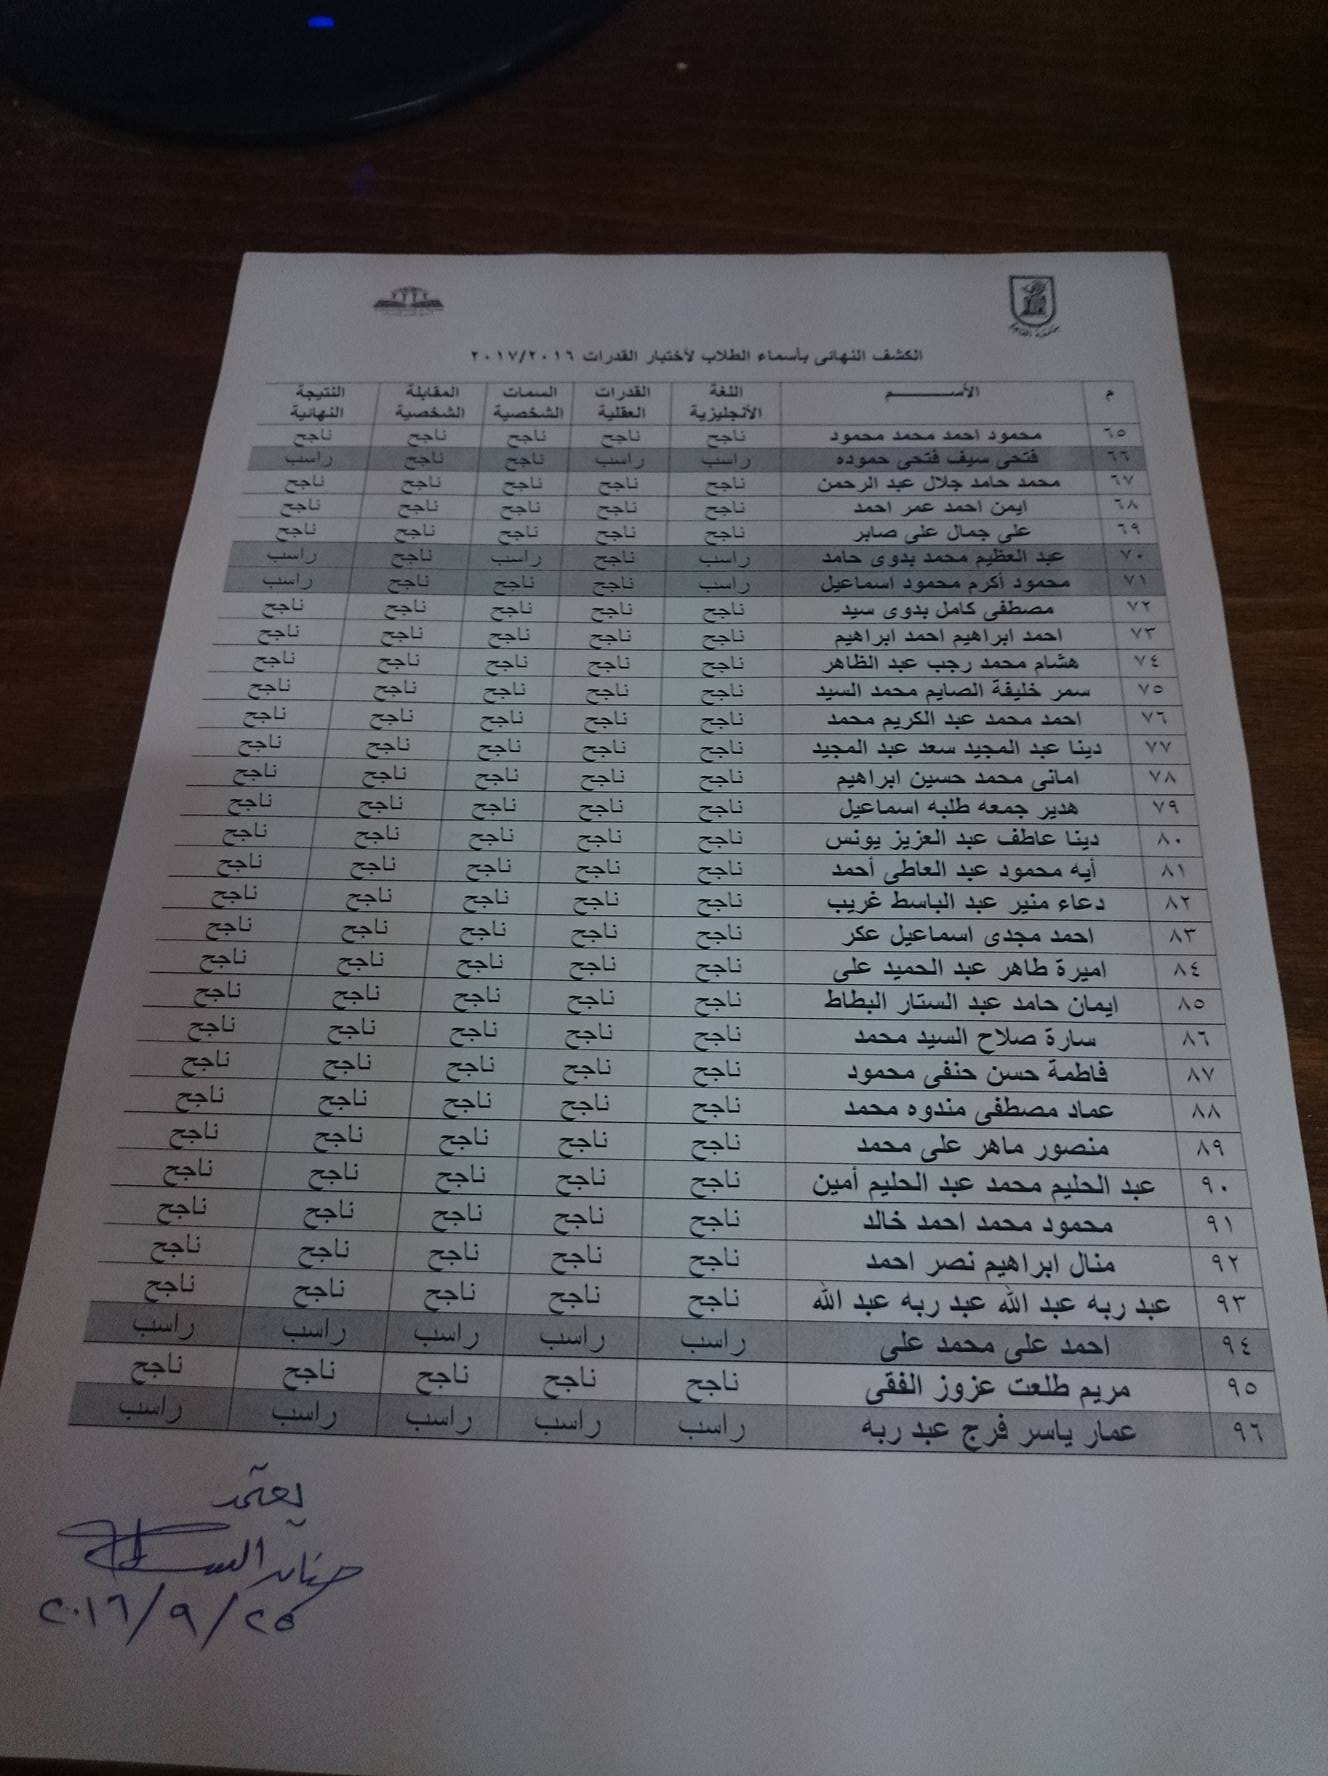 الكشف النهائى بأسماء الطلاب لأختبار القدرات ٢٠١٧/٢٠١٦
م الأســــــــم اللغة الأنجليزية القدرات العقلية السمات الشخصية المقابلة الشخصية النتيجة النهائية
٦٥ محمود احمد محمد محمود ناجح ناجح ناجح ناجح ناجح
٦٦ فتحى سيف فتحى حموده راسب راسب ناجح ناجح راسب
٦٧ محمد حامد جلال عبد الرحمن ناجح ناجح ناجح ناجح ناجح
٦٨ ايمن احمد عمر احمد ناجح ناجح ناجح ناجح ناجح
٦٩ على جمال على صابر ناجح ناجح ناجح ناجح ناجح
٧٠ عبد العظيم محمد بدوى حامد راسب ناجح راسب ناجح راسب
٧١ محمود أكرم محمود اسماعيل راسب ناجح ناجح ناجح راسب
٧٢ مصطفى كامل بدوى سيد ناجح ناجح ناجح ناجح ناجح
٧٣ احمد ابراهيم احمد ابراهيم ناجح ناجح ناجح ناجح ناجح
٧٤ هشام محمد رجب عبد الظاهر ناجح ناجح ناجح ناجح ناجح
٧٥ سمر خليفة الصايم محمد السيد ناجح ناجح ناجح ناجح ناجح
٧٦ احمد محمد عبد الكريم محمد ناجح ناجح ناجح ناجح ناجح
٧٧ دينا عبد المجيد سعد عبد المجيد ناجح ناجح ناجح ناجح ناجح
٧٨ امانى محمد حسين ابراهيم ناجح ناجح ناجح ناجح ناجح
٧٩ هدير جمعه طلبه اسماعيل ناجح ناجح ناجح ناجح ناجح
٨٠ دينا عاطف عبد العزيز يونس ناجح ناجح ناجح ناجح ناجح
٨١ أيه محمود عبد العاطى أحمد ناجح ناجح ناجح ناجح ناجح
٨٢ دعاء منير عبد الباسط غريب ناجح ناجح ناجح ناجح ناجح
٨٣ احمد مجدى اسماعيل عكر ناجح ناجح ناجح ناجح ناجح
٨٤ اميرة طاهر عبد الحميد على ناجح ناجح ناجح ناجح ناجح
٨٥ ايمان حامد عبد الستار البطاط ناجح ناجح ناجح ناجح ناجح
٨٦ سارة صلاح السيد محمد ناجح ناجح ناجح ناجح ناجح
٨٧ فاطمة حسن حنفى محمود ناجح ناجح ناجح ناجح ناجح
٨٨ عماد مصطفى مندوه محمد ناجح ناجح ناجح ناجح ناجح
٨٩ منصور ماهر على محمد ناجح ناجح ناجح ناجح ناجح
٩٠ عبد الحليم محمد عبد الحليم أمين ناجح ناجح ناجح ناجح ناجح
٩١ محمود محمد احمد خالد ناجح ناجح ناجح ناجح ناجح
٩٢ منال ابراهيم نصر احمد ناجح ناجح ناجح ناجح ناجح
٩٣ عبد ربه عبد الله عبد ربه عبد الله ناجح ناجح ناجح ناجح ناجح
٩٤ احمد على محمد على راسب راسب راسب راسب راسب
٩٥ مريم طلعت عزوز الفقى ناجح ناجح ناجح ناجح ناجح
٩٦ عمار ياسر فرج عبد ربه راسب راسب راسب راسب راسب
يعتمد
٢٠١٦/٩/٢٥